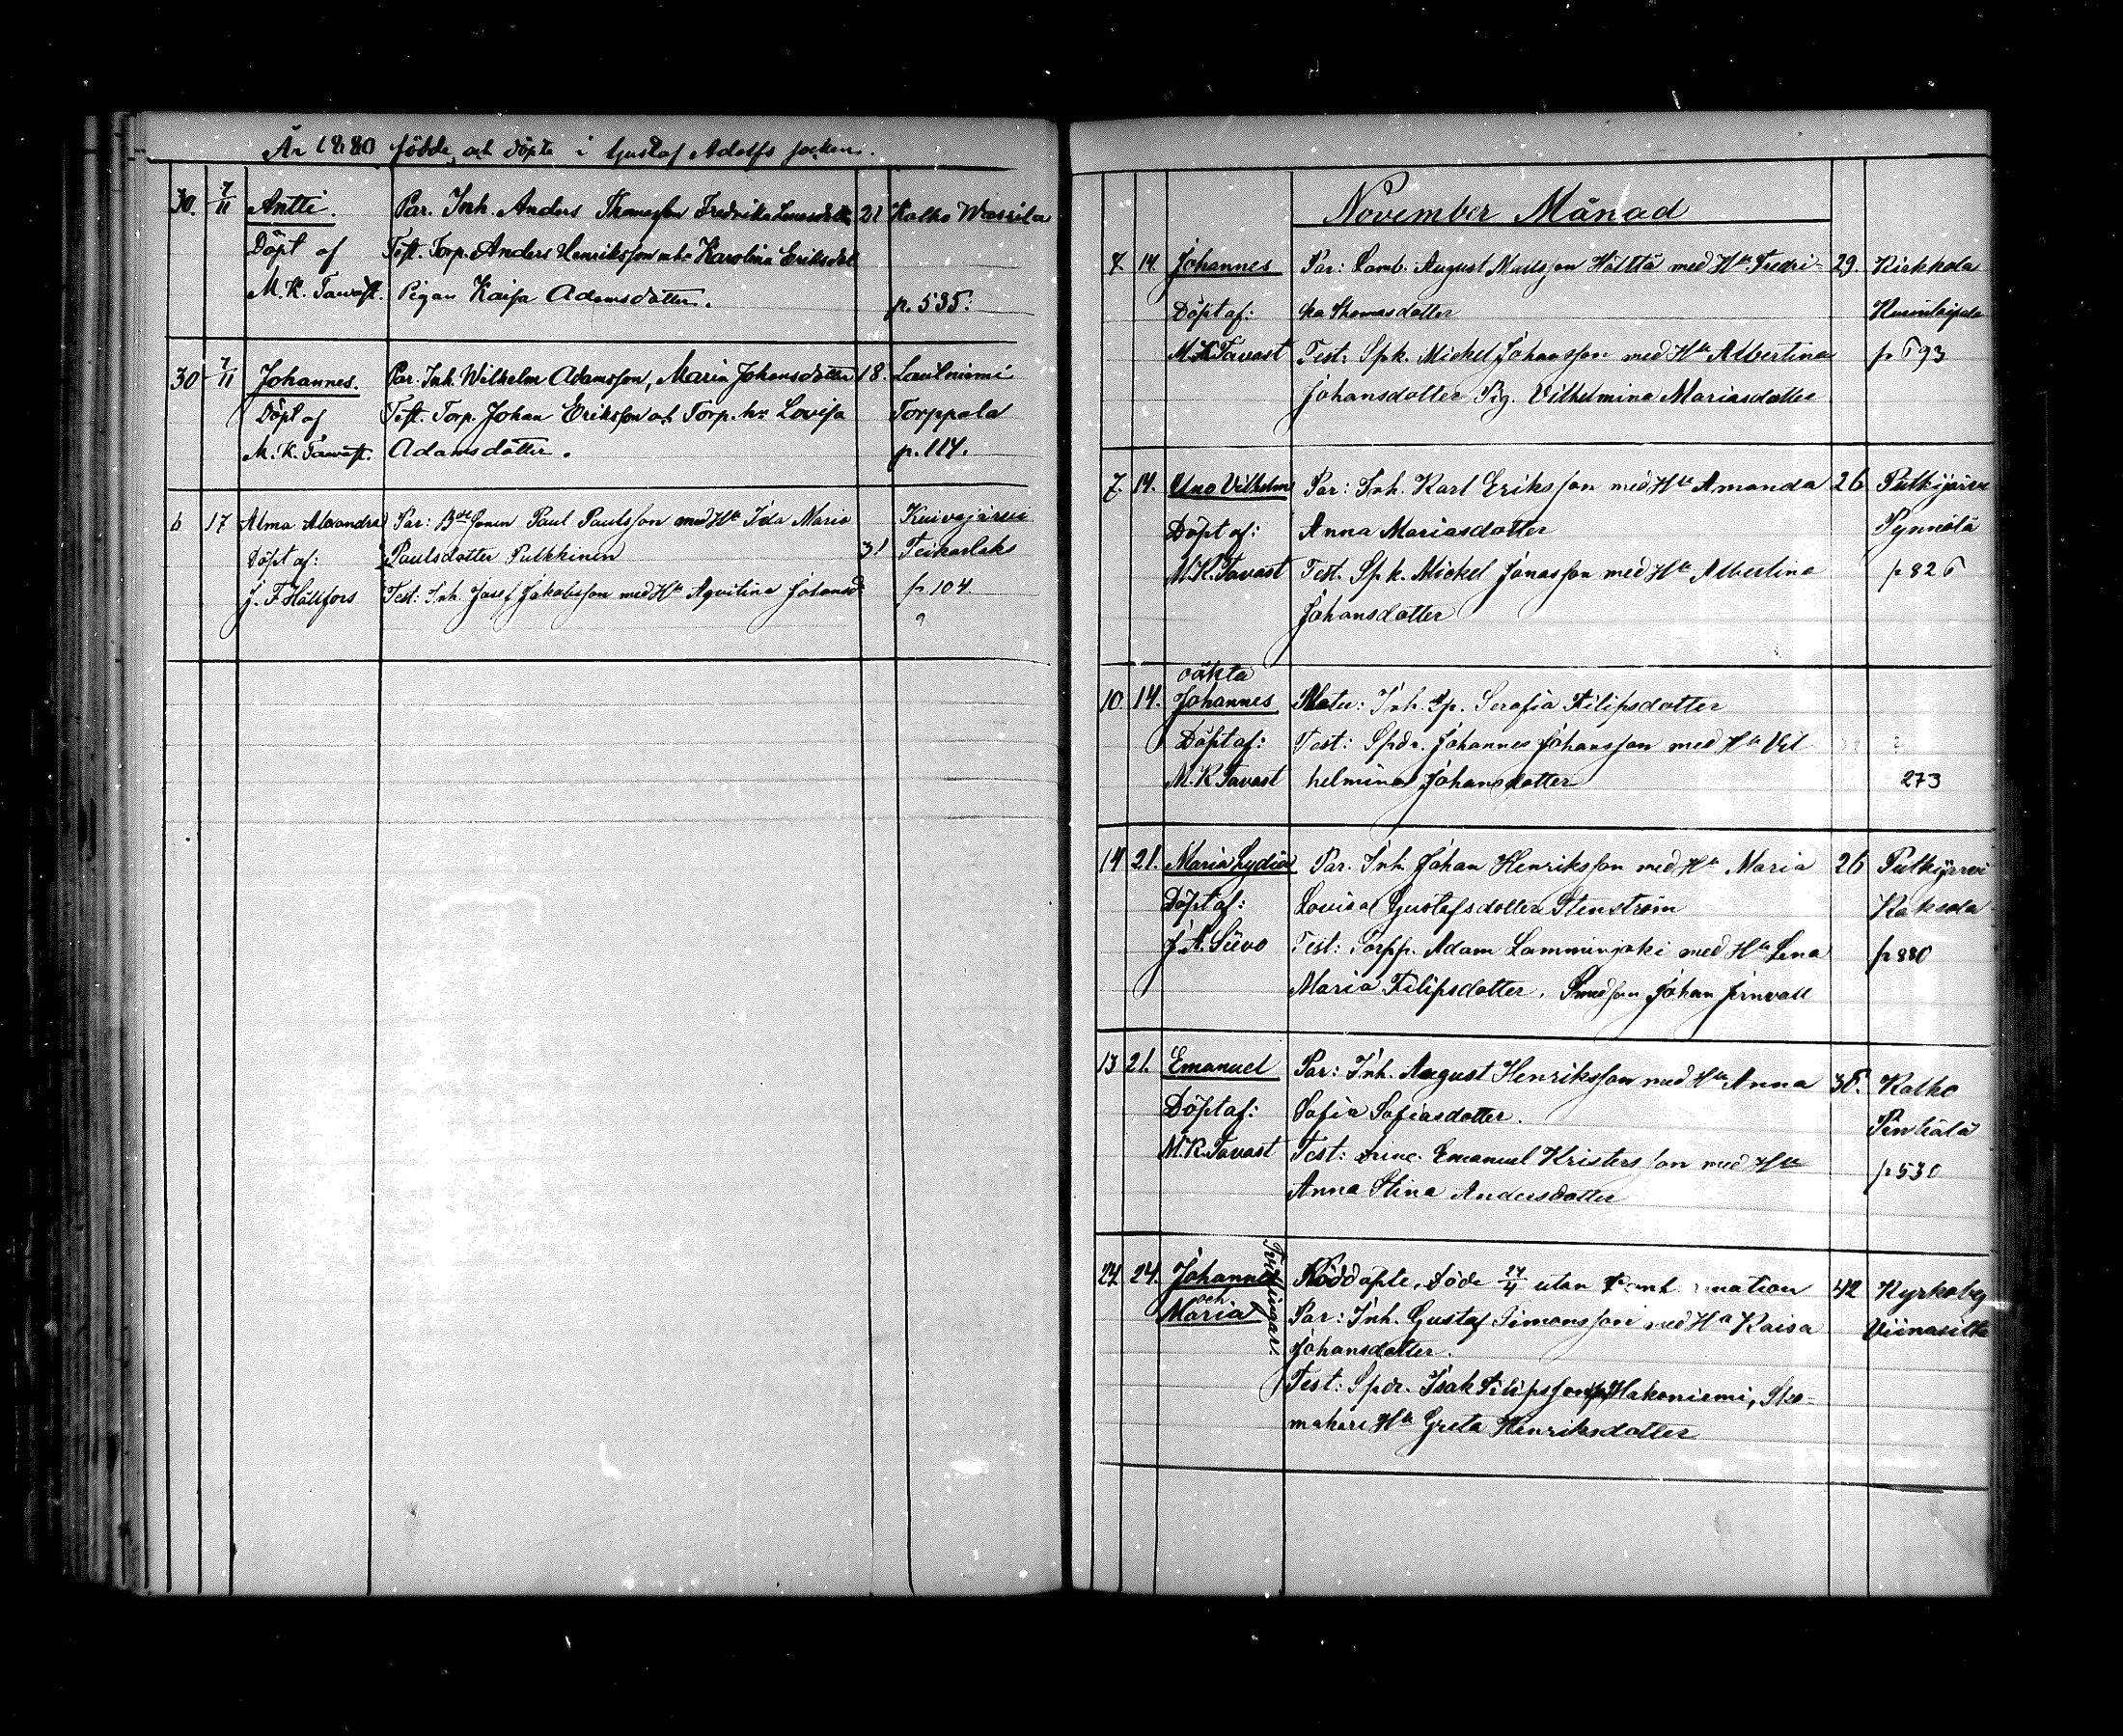 År 1880 födde och döpte i Gustaf Adolfs socken.
30. 7/11 Antti. Par. Inh. Anders Thomasson Fredrika 21 Kalho Wassila
Döpt af Test. Torp. Anders Henriksson o. h. Karolina Eriksdot
M. K. Tawast. Pigan Kaisa Adamsdotter. p. 535.
30 7/11 Johannes. Par. Inh. Wilhelm Adamsson, Maria Johansdotter 18. Lautniemi
Döpt af Test. Torp. Johan Eriksson och Torp. hu Lovisa Torppala
M. K. Tawast. Adamsdotter. p. 114.
6 17 Alma Alexandra Par: Bdesonen Paul Paulsson med Hu Ida Maria Kuivajärvi
Döpt af: Paulsdotter Pulkkinen 31 Teikarlaks
J. F. Hällfors Test: Inh. Josef Jakobsson med Hu Agvitina Johansd p. 104.
November Månad
7. 14. Johannes Par: Lamb. August Mattsson Hölttä med Hu Fredri- 29. Kirkkola
Döpt af: ka Thomasdotter
M.K. Tavast Test: Spk. Mickel Johansson med Hu Albertina p 693
Johansdotter Pig. Vilhelmina Mariasdotter
7. 14. Uno Vilhelm Par: Inh. Karl Eriksson med Hu Amanda 26 Putkijärvi
Döpt af: Anna Mariasdotter Pynnölä
M.K. Tavast Test. Spk. Mickel Jonasson med Hu Albertina p 826
Johansdotter
oäkta
10. 14. Johannes Moder: Inh. Serafia Filipsdotter
Döpt af: Test: Spdr. Johannes Johansson med Hu Vil
M.K. Tavast helmina Johansdotter 273
14 21. Maria Lydia Par. Inh. Johan Henriksson med Hu Maria 26 Putkijärvi
Döpt af: Lovisa Gustafsdotter Stenström Kakola
J. A. Siivo Test: Torpp. Adam Lamminjoki med Hu Lena p 880
Maria Filipsdotter. Smedson Johan Jernvall
13 21. Emanuel Par: Inh. August Henriksson med Hu Anna 36. Kalho
Döpt af: Sofia Sofiasdotter. Penkälä
M.K. Tavast Test: Emanuel Kristersson med Hu p 530
Anna Stina Andersdotter
24 24. Johannes Nöddöpte, döde utan 42 Kyrkoby
och
Maria Tvillingar. Par: Inh. Gustaf Simonsson med Hu Kaisa Viinasilta
Johansdotter.
Test: Spdr. Isak Filipsson Hakoniemi, Sko-
makare Hu Greta Henriksdotter